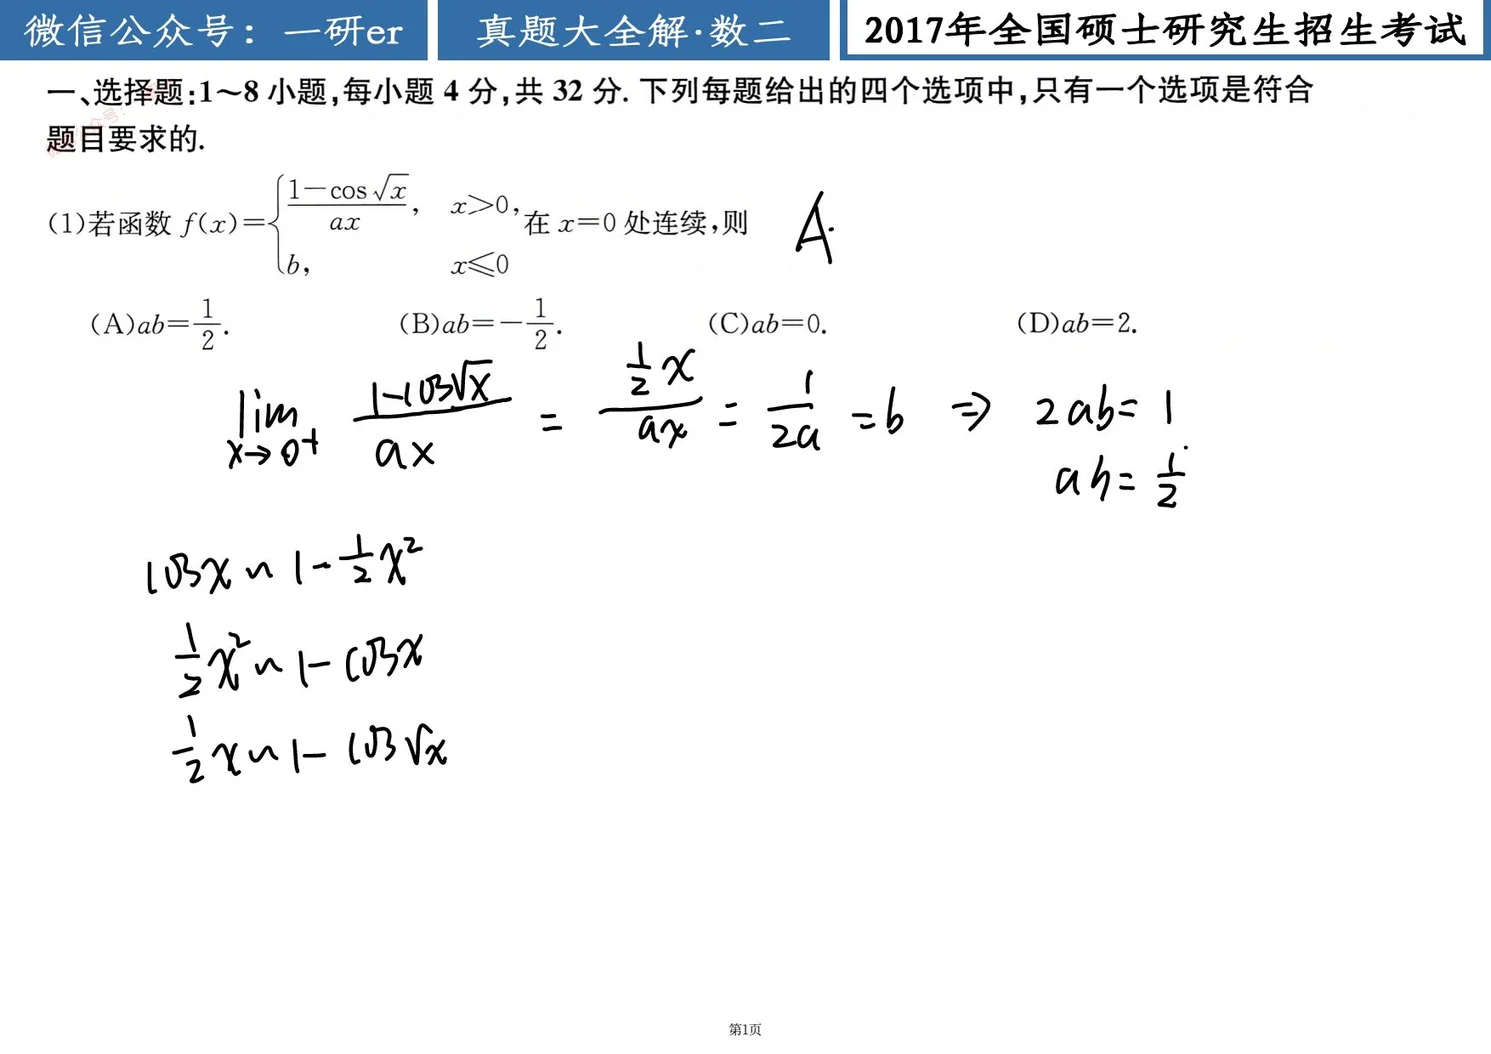 微信公众号：一研er 真题大全解·数二 2017年全国硕士研究生招生考试
一、选择题:1～8 小题,每小题 4 分,共 32 分. 下列每题给出的四个选项中,只有一个选项是符合
题目要求的.
(1)若函数 f(x)={(1-cos√x)/(ax), x>0, b, x≤0 在 x=0 处连续,则 A.
(A)ab=1/2. (B)ab=-1/2. (C)ab=0. (D)ab=2.
lim x→0+ (1-cos√x)/(ax) = (1/2 x)/(ax) = 1/(2a) = b ⇒ 2ab=1
ab=1/2
cosx ~ 1-1/2 x²
1/2 x² ~ 1-cosx
1/2 x ~ 1-cos√x
第1页